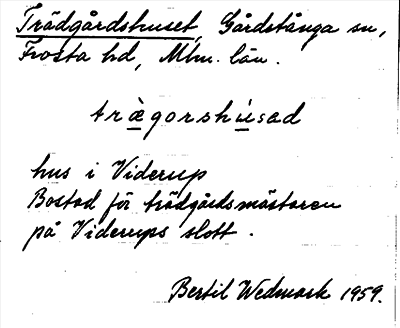 Trädgårdshuset, Gårdstånga sn,
Frosta hd, Mlm. län.
trægorshùsad
hus i Viderup
Bostad för trädgårdsmästaren
på Viderups slott.
Bertil Wedmark 1959.